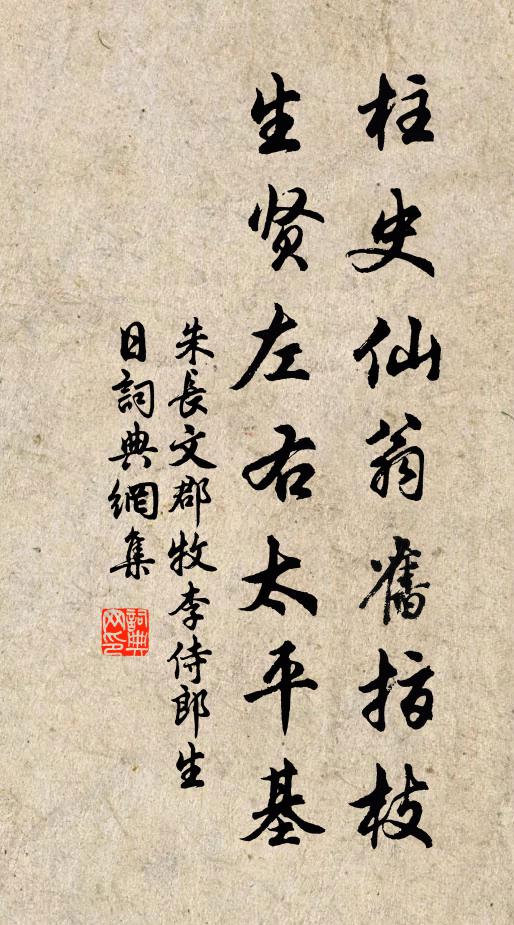 柱史仙翁舊指枝
生贤左右太平基
朱長文郡牧李侍郎生
日詞典網集
詞典网印